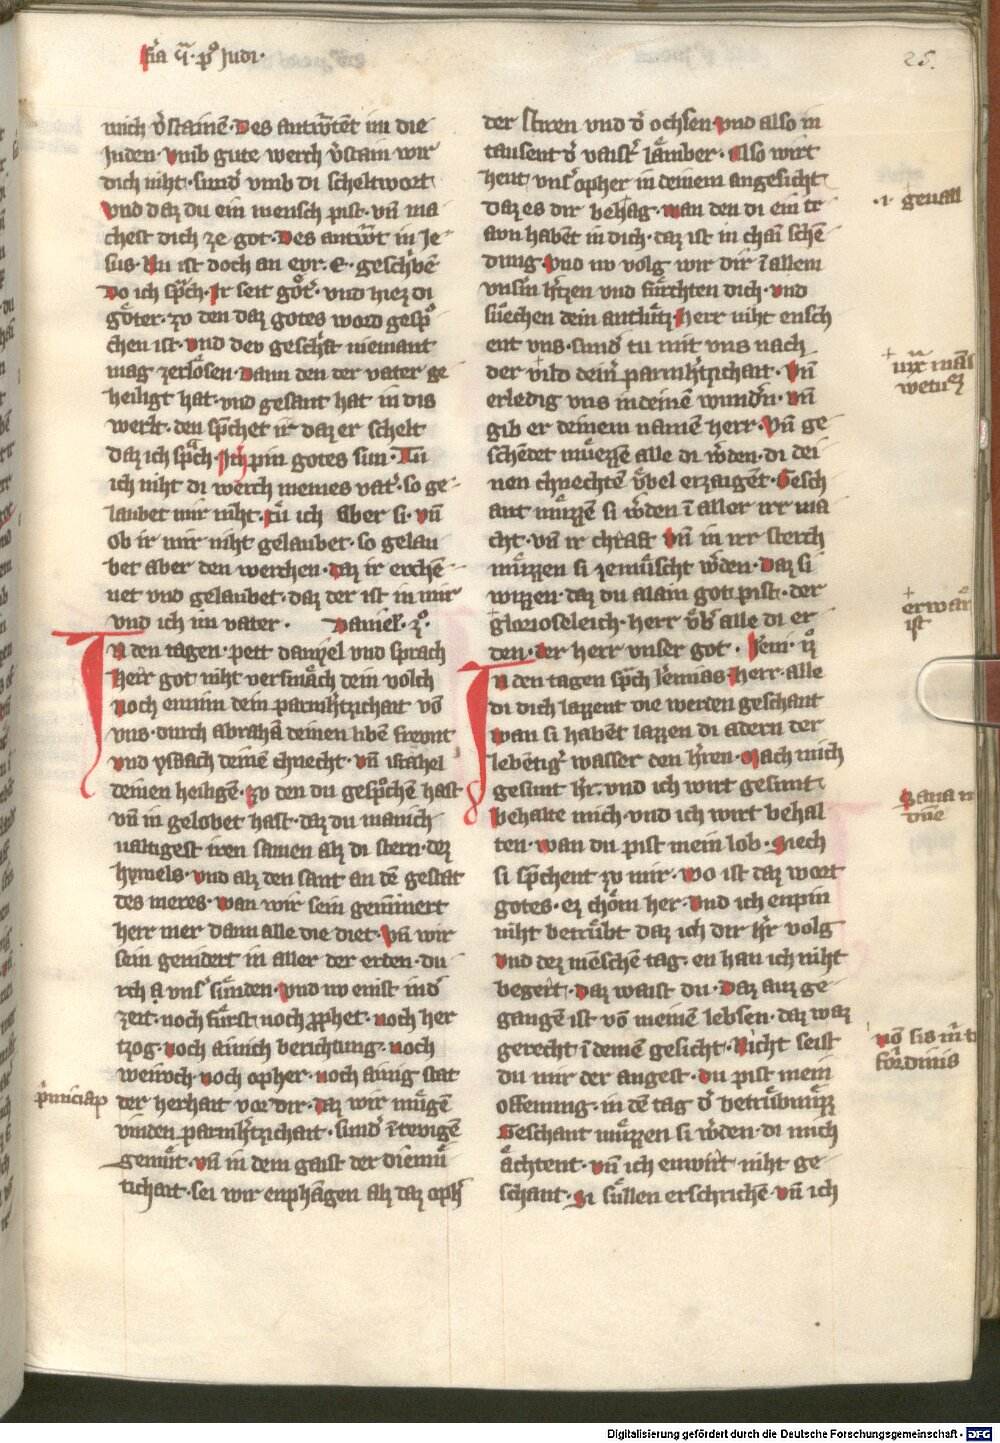 fr̄ia q̄ꝛ · pꝰ Judi ·
25.
mich v̓stainē · Des antw̄tēt im die
Juden · Vmb gute werch v̓stain wir
dich niht · sund̓ vmb di scheltwort
Vnd daz du ein mensch pist · vn̄ ma
chest dich ze got · Des antw̄t in Je
sus · Nu ist doch an eỽr · E · geschribē
Do ich sp̄ch · Ir seit göt̓ · vnd hiez di
göter · zv den daz gotes word gesp̊
chen ist · vnd dev geschr̓ft niemant
mag zerlösen · Dann den der vater ge
heiligt hat · vnd gesant hat in dis
werlt · den sp̄chet ir daz er schelt
daz ich sp̄ch · Ich pin gotes sun · Tu
ich niht di werch meines vat̓ · so ge
laubet mir niht · Tu ich aber si · vn̄
ob ir mir niht gelaubet · so gelau
bet aber den werchen · daz ir erche
net vnd gelaubet · daz der ist in mir
vnd ich im vater · Daniel · ꝫ̊ ·
In den tagen · pett danyel vnd sprach
Herr got niht versmäch dein volch
noch enmin dein parmh̓tzichait võ
vns · durch abrahā deinen libē frevnt
vnd ysaach deinē chnecht · vn̄ israhel
deinen heiligē · zv den du gesp̊chē hast
vn̄ in gelobet hast · daz du manich
ualtigest iren samen alz di stern · dez
hymels · vnd alz den sant an dē gestat
des meres · wan wir sein geminnert
herr mer dann alle die diet · Vn̄ wir
sein genidert in aller der erden · du
rch a vns̓ sünden · Vnd nv enist in d̓
zeit · noch fürst noch ꝓphet · noch her
tzog · noch ainich berichtung · noch
weiroch noch opher · noch ainig stat
der herhait vor dir · daz wir mügē
vinden parmh̓tzichait · sund̓ ī tevigē
gemüt · vn̄ in dem gaist der diemü
tichait · sei wir enphangen alz daz oph̓
p̓nnciap
der stiren vnd d̓ ochsen · Vnd also in
tausent d̓ vaist̓ lämber · Also wirt
heut vns̓ opher in deinem angesicht
daz es dir behag · wan den di ein tr
avn habēt in dich · daz ist in chai schē
dung · Vnd nv volg wir dir ī allem
vns̓m h̓tzen vnd fürchten dich · vnd
süechen dein antlütz · Herr niht ensch
ent vns · sund̓ tu mit vns nach
der mild dein̓ parmh̓tzichait · Vn̄
erledig vns in deinē wund̓n · vn̄
gib er deinem namen herr · Vn̄ ge
schendet müezzē alle di w̓den · di dei
nen chnechtē v̈bel erzaigēt · Gesch
ant müzzē si w̓den ī aller irr ma
cht · vn̄ ir chraft vn̄ in irr sterch
müzzen si zemüscht w̓den · Daz si
wizzen · daz du alain got pist · der
glorioseleich · herr v̈b̓ alle di er
den · der herr vnser got · Jemi · ꝫ̊
In den tagen sp̄ch Jeremias · Herr · alle
di dich lazzent die werden geschant
wan si habēt lazzen di adern der
lebētig̓ wasser den h̓ren · Mach mich
gesunt h̓r · vnd ich wirt gesunt
behalte mich · vnd ich wirt behal
ten · wan du pist mein lob · Siech
si sp̄chent zv mir · wo ist daz wort
gotes · ez chöm her · Vnd ich enpin
niht betrübt daz ich dir h̓r volg
vnd dez mēschē tag · en han ich niht
begert · daz waist du · Daz auz ge
gangē ist võ meinen lebsen · daz waz
gerecht ī deinē gesicht · Nicht seist
du mir der angest · du pist mein
offenung · in dē tag d̓ betrübnüzz
Geschant müzzen si w̓den · di mich
ächtent · vn̄ ich enwirt niht ge
schant · Si süllen erschrichē · vn̄ ich
· i · geuall